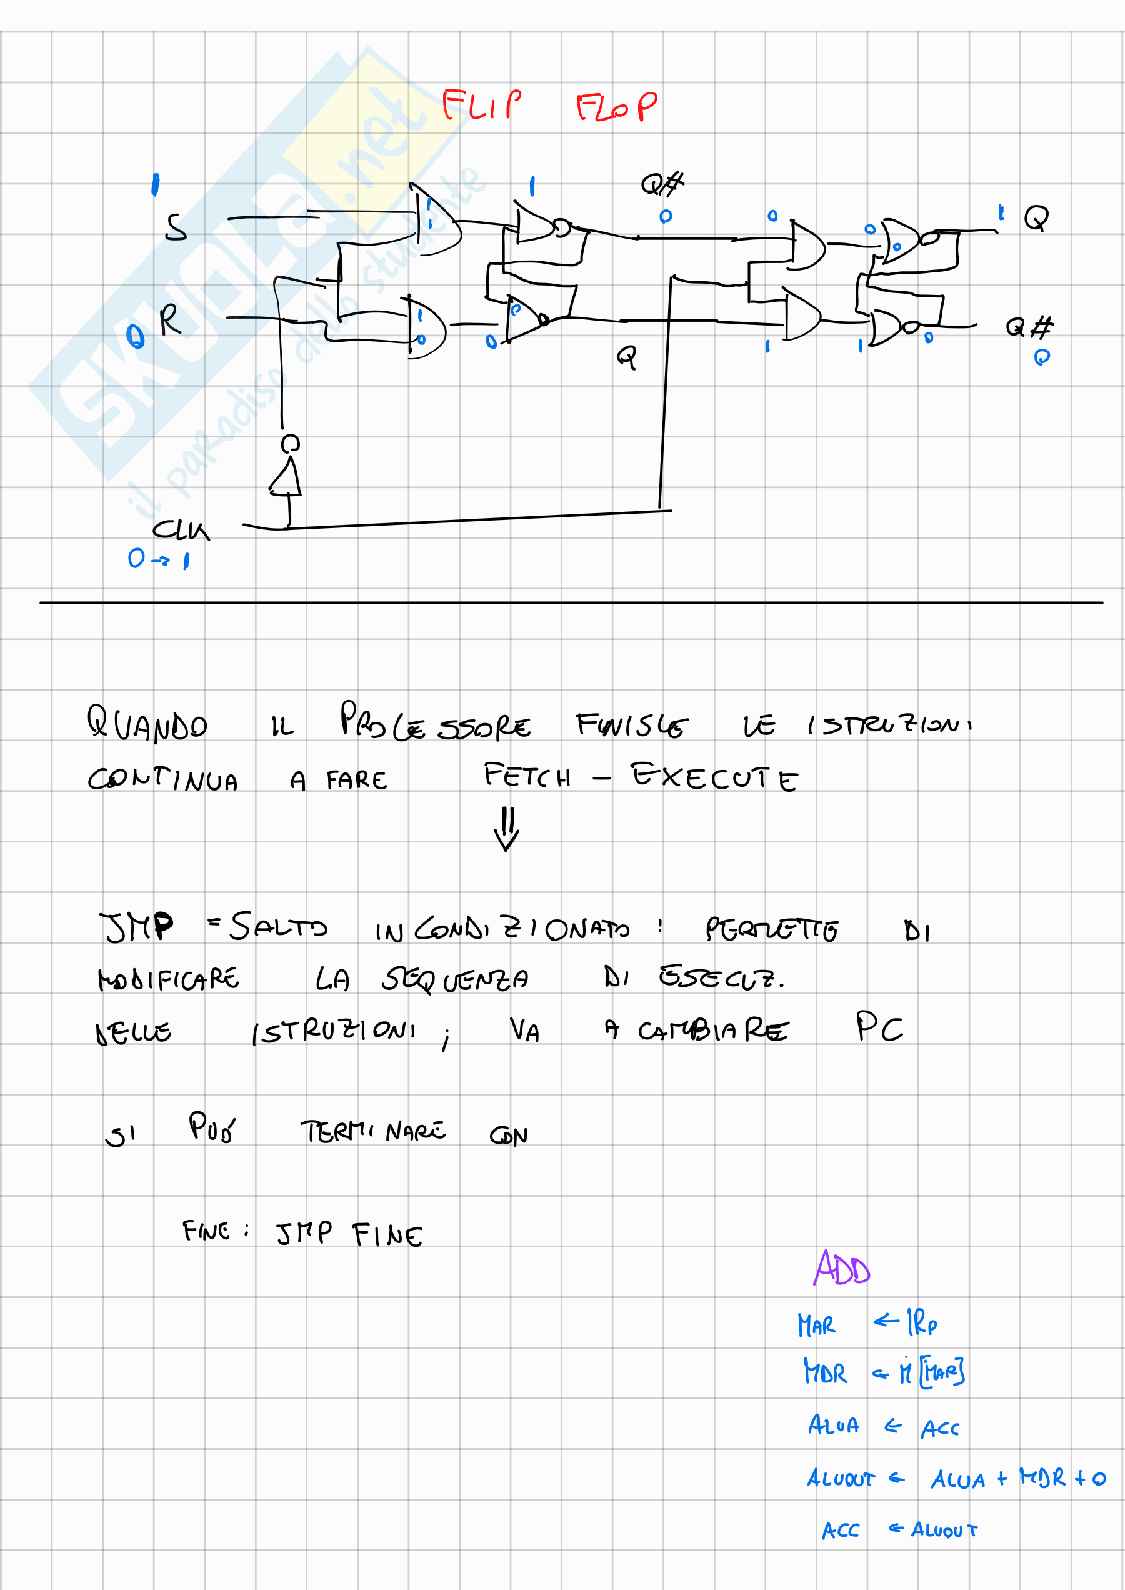 FLIP FLOP
1
S
1
1
1
Q#
0
0
0
0
1
Q
0
R
1
0
0
0
Q
1
1
0
Q#
0
CLK
0 → 1
QUANDO IL PROCESSORE FINISCE LE ISTRUZIONI
CONTINUA A FARE FETCH - EXECUTE
⇓
JMP = SALTO INCONDIZIONATO : PERMETTE DI
MODIFICARE LA SEQUENZA DI ESECUZ.
DELLE ISTRUZIONI ; VA A CAMBIARE PC
SI PUÓ TERMINARE CON
FINE : JMP FINE
ADD
MAR ← IRp
MDR ← M [MAR]
ALUA ← ACC
ALUOUT ← ALUA + MDR + 0
ACC ← ALUOUT
SKUOLA.net
il paradiso dello studente